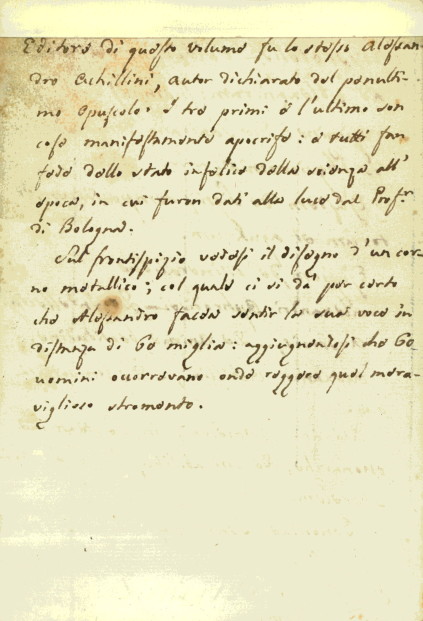 Editore di questo volume fu lo stesso Alessan-
dro Achillini, autor dichiarato del penulti-
mo opuscolo. I tre primi e l'ultimo son
cose manifestamente apocrife: e tutti fan
fede dello stato infelice della scienza all'
epoca, in cui furon dati alla luce dal Profr.
di Bologna.
Sul frontispizio vedesi il disegno d'un cor-
no metallico; col quale ci si dà per certo
che Alessandro facea sentir la sua voce in
distanza di 60 miglia: aggiugnendosi che 60
uomini occorrevano onde reggere quel mara-
viglioso stromento.